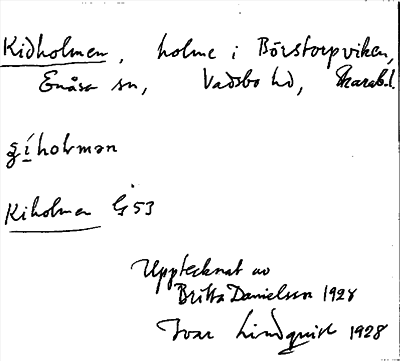 Kidholmen, holme i Börstorpviken,
Enåsa sn, Vadsbo hd, Skarab.l.
ʃíholmən
Kiholmen G 53
Upptecknat av
Britta Danielsson 1928
Ivar Lindquist 1928